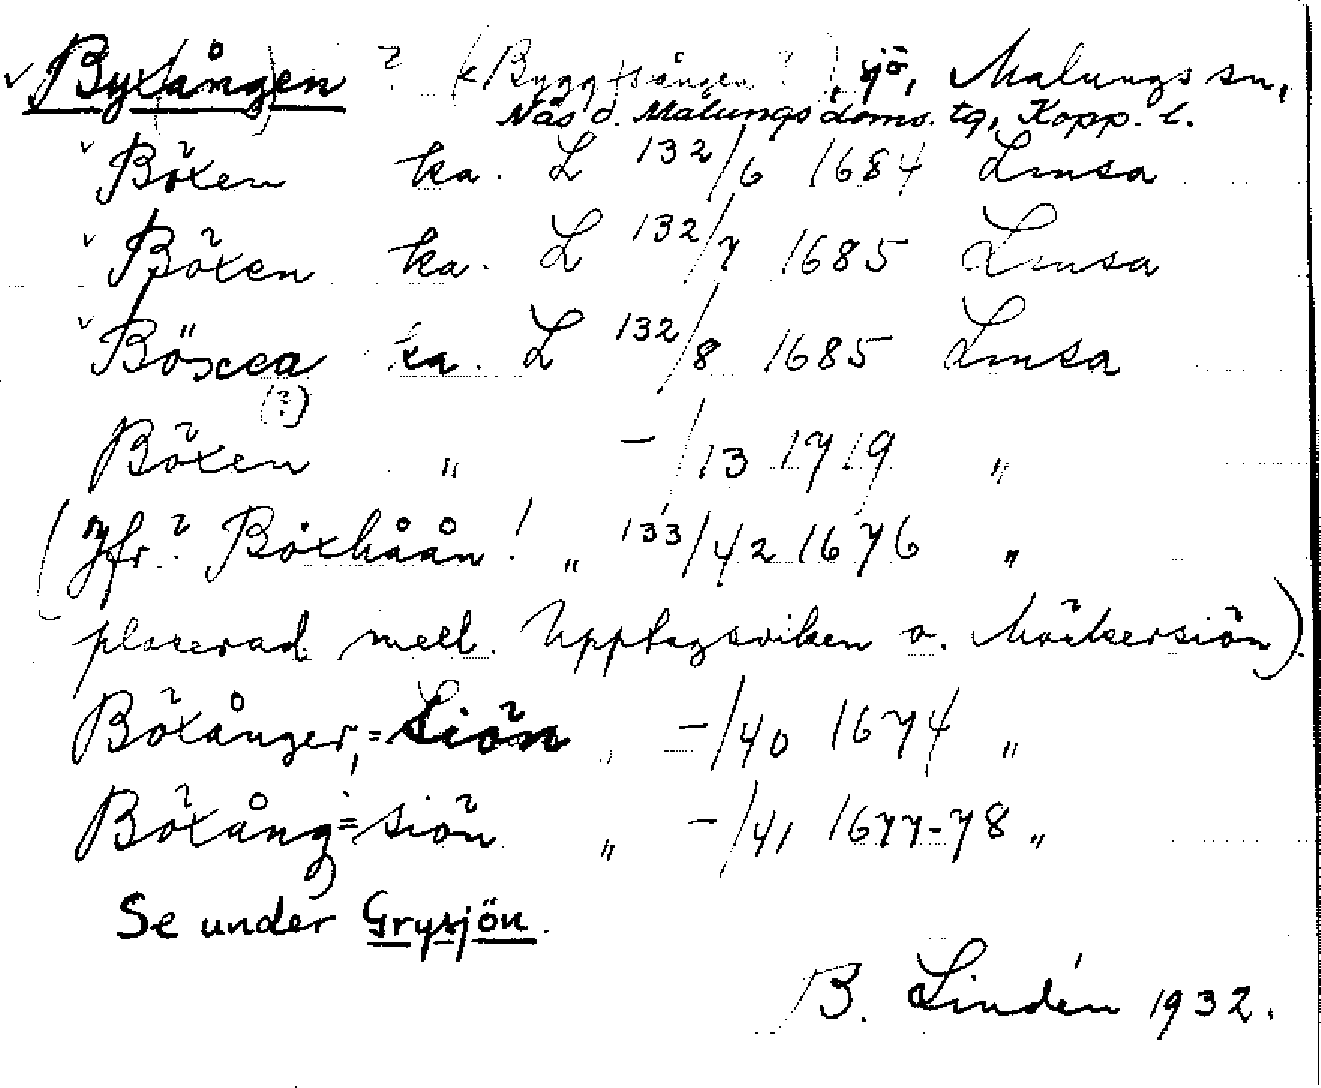 v Byx(ång)en ? (< Byggtsången ?), sjö, Malungs sn,
Näs o. Malungs doms. tg, Kopp. l.
v Böxen ka. L 132/6 1684 Lmsa
v Böxen ka. L 132/7 1685 Lmsa
v Böxea ka. L 132/8 1685 Lmsa
(?)
Böxen " -/13 1719 "
(Jfr? Böxhåån! " 133/42 1676 "
placerad mell. Upptagsviken o. Möckersiön).
Böxånger,=Siön " -/40 1674 "
Böxång=siön " -/41 1677-78 "
Se under Grysjön.
B. Lindén 1932.